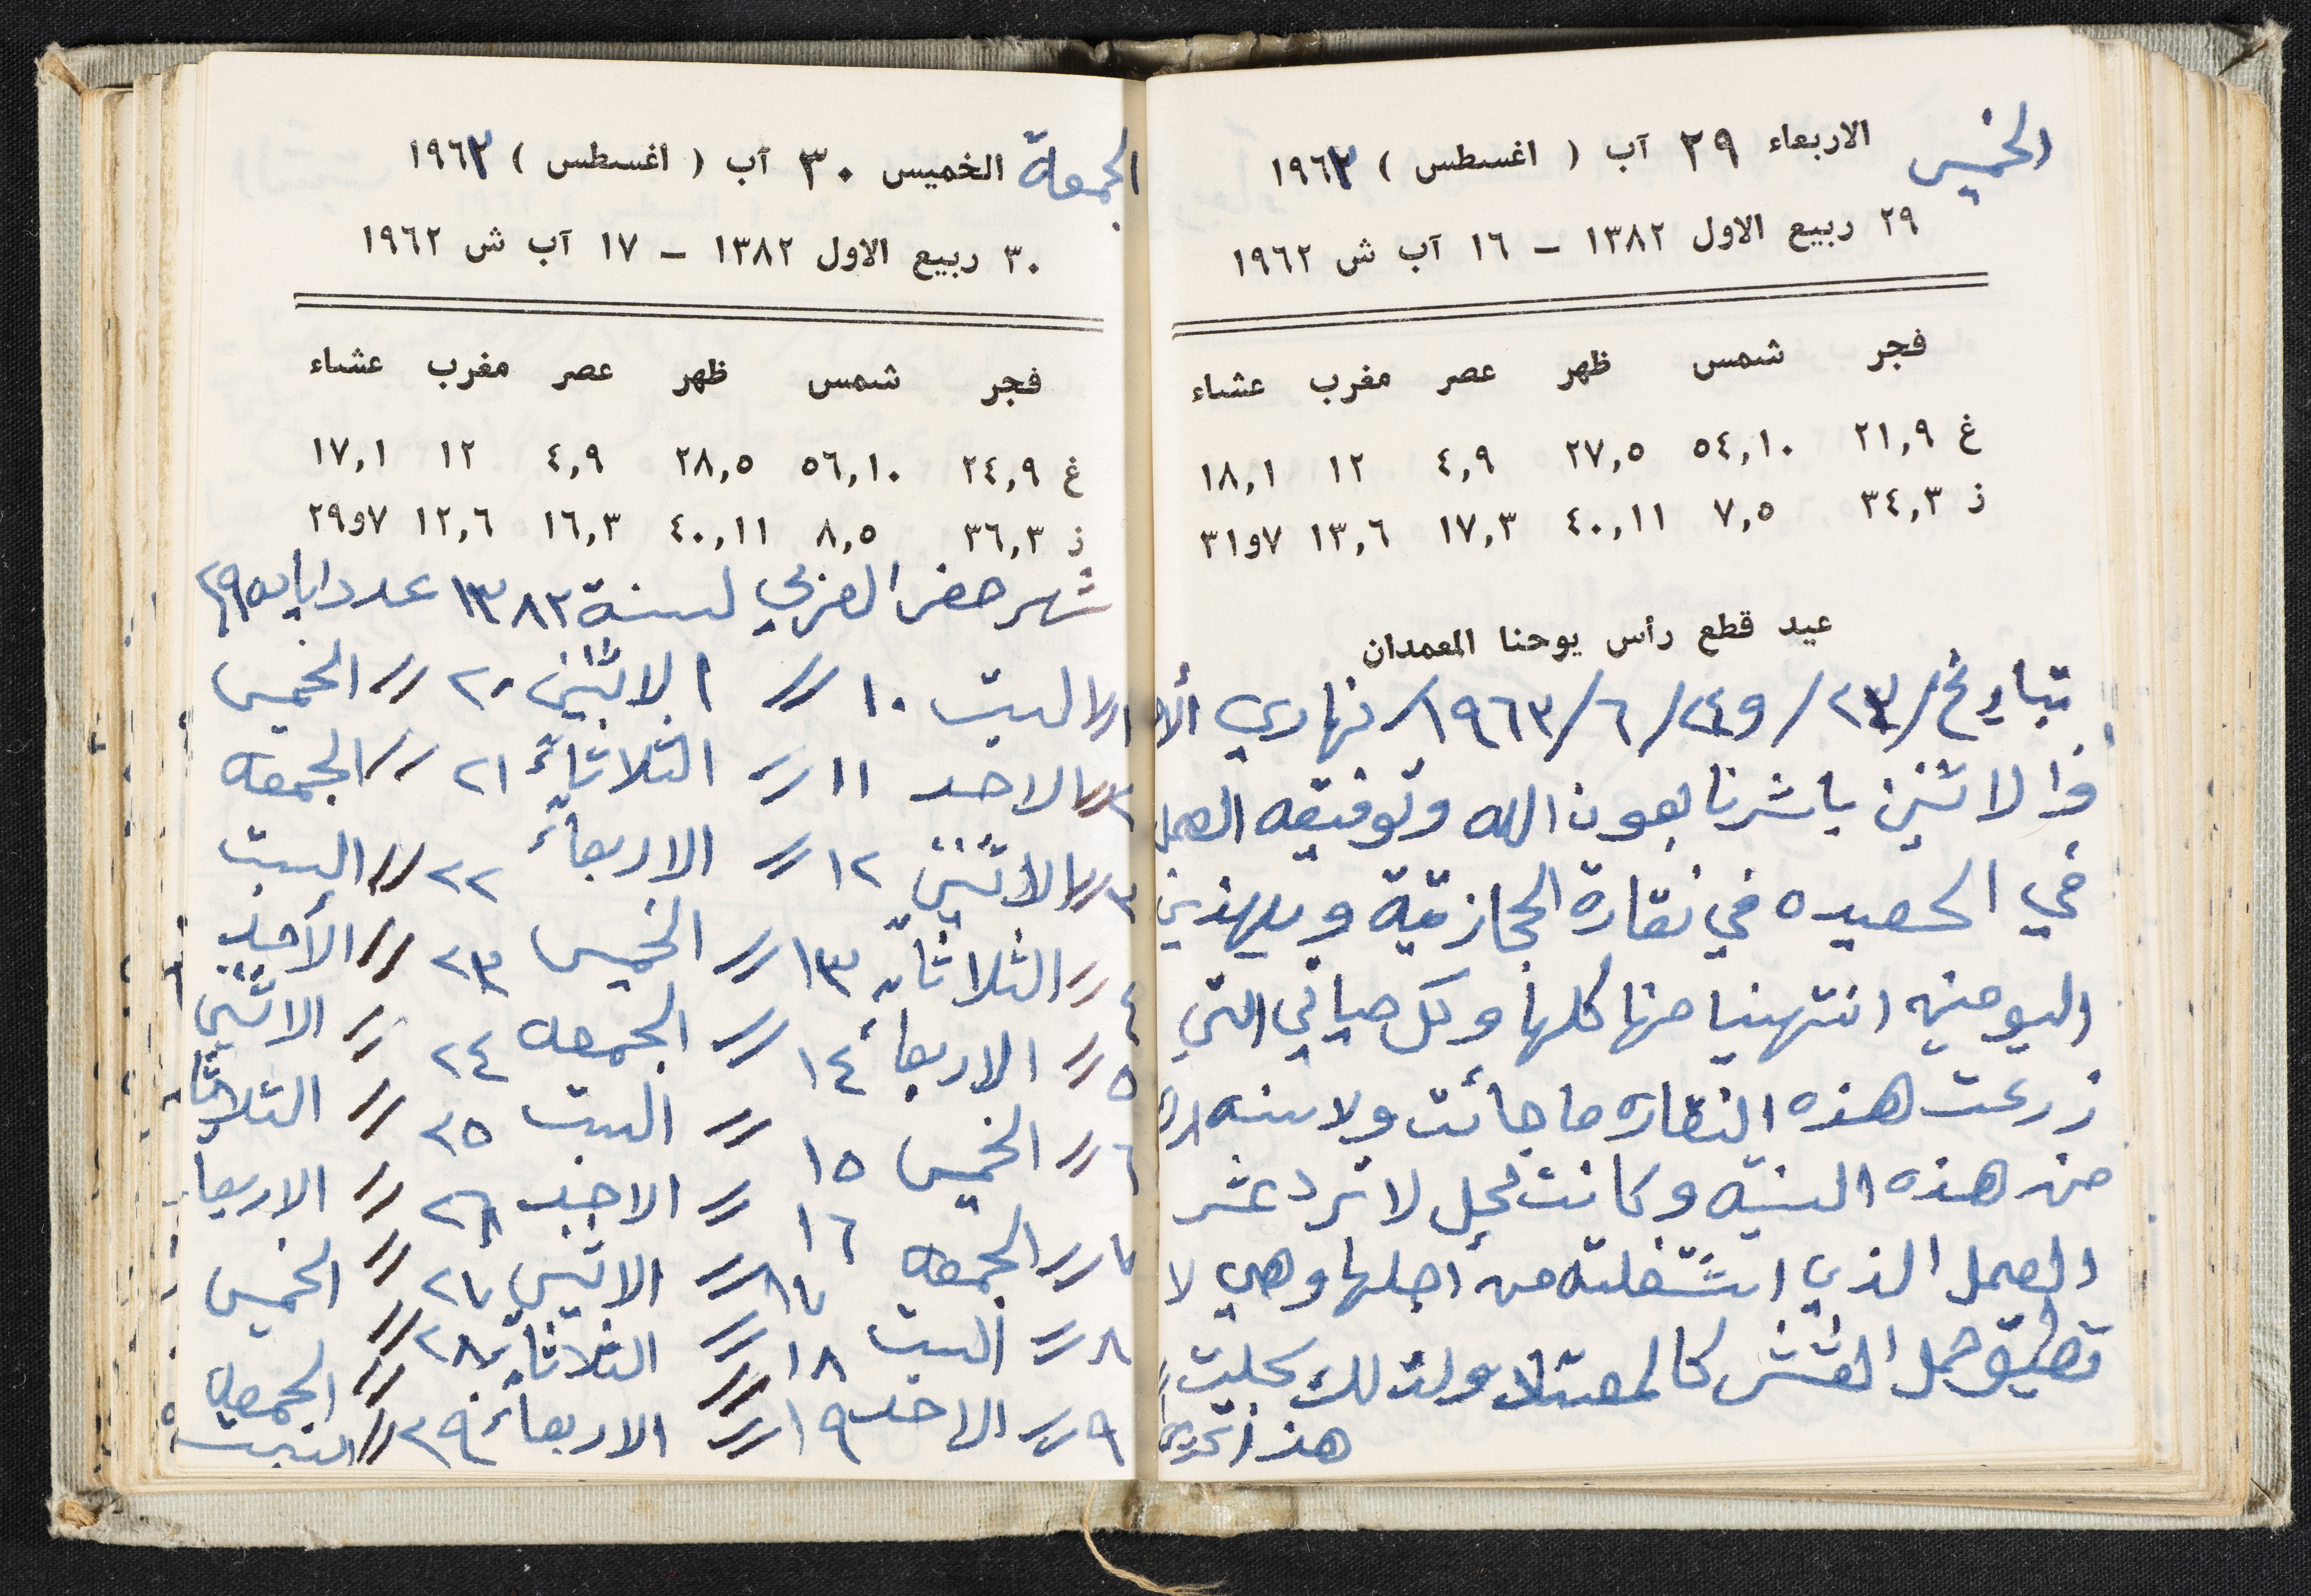 الخميس الاربعاء ٢٩ آب ( اغسطس ) ١٩٦٣
٢٩ ربيع الاول ١٣٨٢ – ١٦ آب ش ١٩٦٢
فجر شمس ظهر عصر مغرب عشاء
غ ٢١,٩ ٥٤,١٠ ٢٧,٥ ٤,٩ ١٢ ١٨,١
ز ٣٤,٣ ٧,٥ ٤٠,١١ ١٧,٣ ١٣,٦ ٧و٣١
عيد قطع رأس يوحنا المعمدان
بتاريخ/٢٣/و٢٤/٦/١٩٦٣/نهاري الأحد
والاثنين باشرنا بعون الله وتوفيقه العمل
في الحصيده في نقارة الحجازقية وبهذين
اليومين انتهينا منها كلها وكل حياتي التي
زرعت هذه النقاره ما جائت ولا سنه
من هذه السنية وكانت محل لا ترد عشر
العمل الذي اشتغلته من اجلها وهي لا
تطيق حمل القش كالمعتلا ولذلك بخلت
هذا
الجمعة الخميس ٣٠ آب ( اغسطس ) ١٩٦٣
٣٠ ربيع الاول ١٣٨٢ – ١٧ آب ش ١٩٦٢
فجر شمس ظهر عصر مغرب عشاء
غ ٢٤,٩ ٥٦,١٠ ٢٨,٥ ٤,٩ ١٢ ١٧,١
ز ٣٦,٣ ٨,٥ ٤٠,١١ ١٦,٣ ١٢,٦ ٧و٢٩
شهر صفر العربي لسنة ١٣٨٢ عدد ايامه ٢٩
١ // السبت ١٠ // الاثنين ٢٠ // الخميس
٢ // الاحد ١١ // الثلاثاءُ ٢١ // الجمعه
٣ // الاثنين ١٢ // الاربعاءُ ٢٢ // السبت
٤ // الثلاثاء ١٣ // الخميس ٢٣ // الأحد
٥ // الاربعاء ١٤ // الجمعه ٢٤ // الاثنين
٦ // الخميس ١٥ // السبت ٢٥ // الثلاثا
٧ // الجمعه ١٦ // الاحد ٢٦ // الاربعا
٨ // السبت ١٧ // الاثنين ٢٧ // الخميس
٩ // الاحد ١٨ // الثلاثاء ٢٨ // الجمعه
١٩ // الاربعاء ٢٩ // السبت